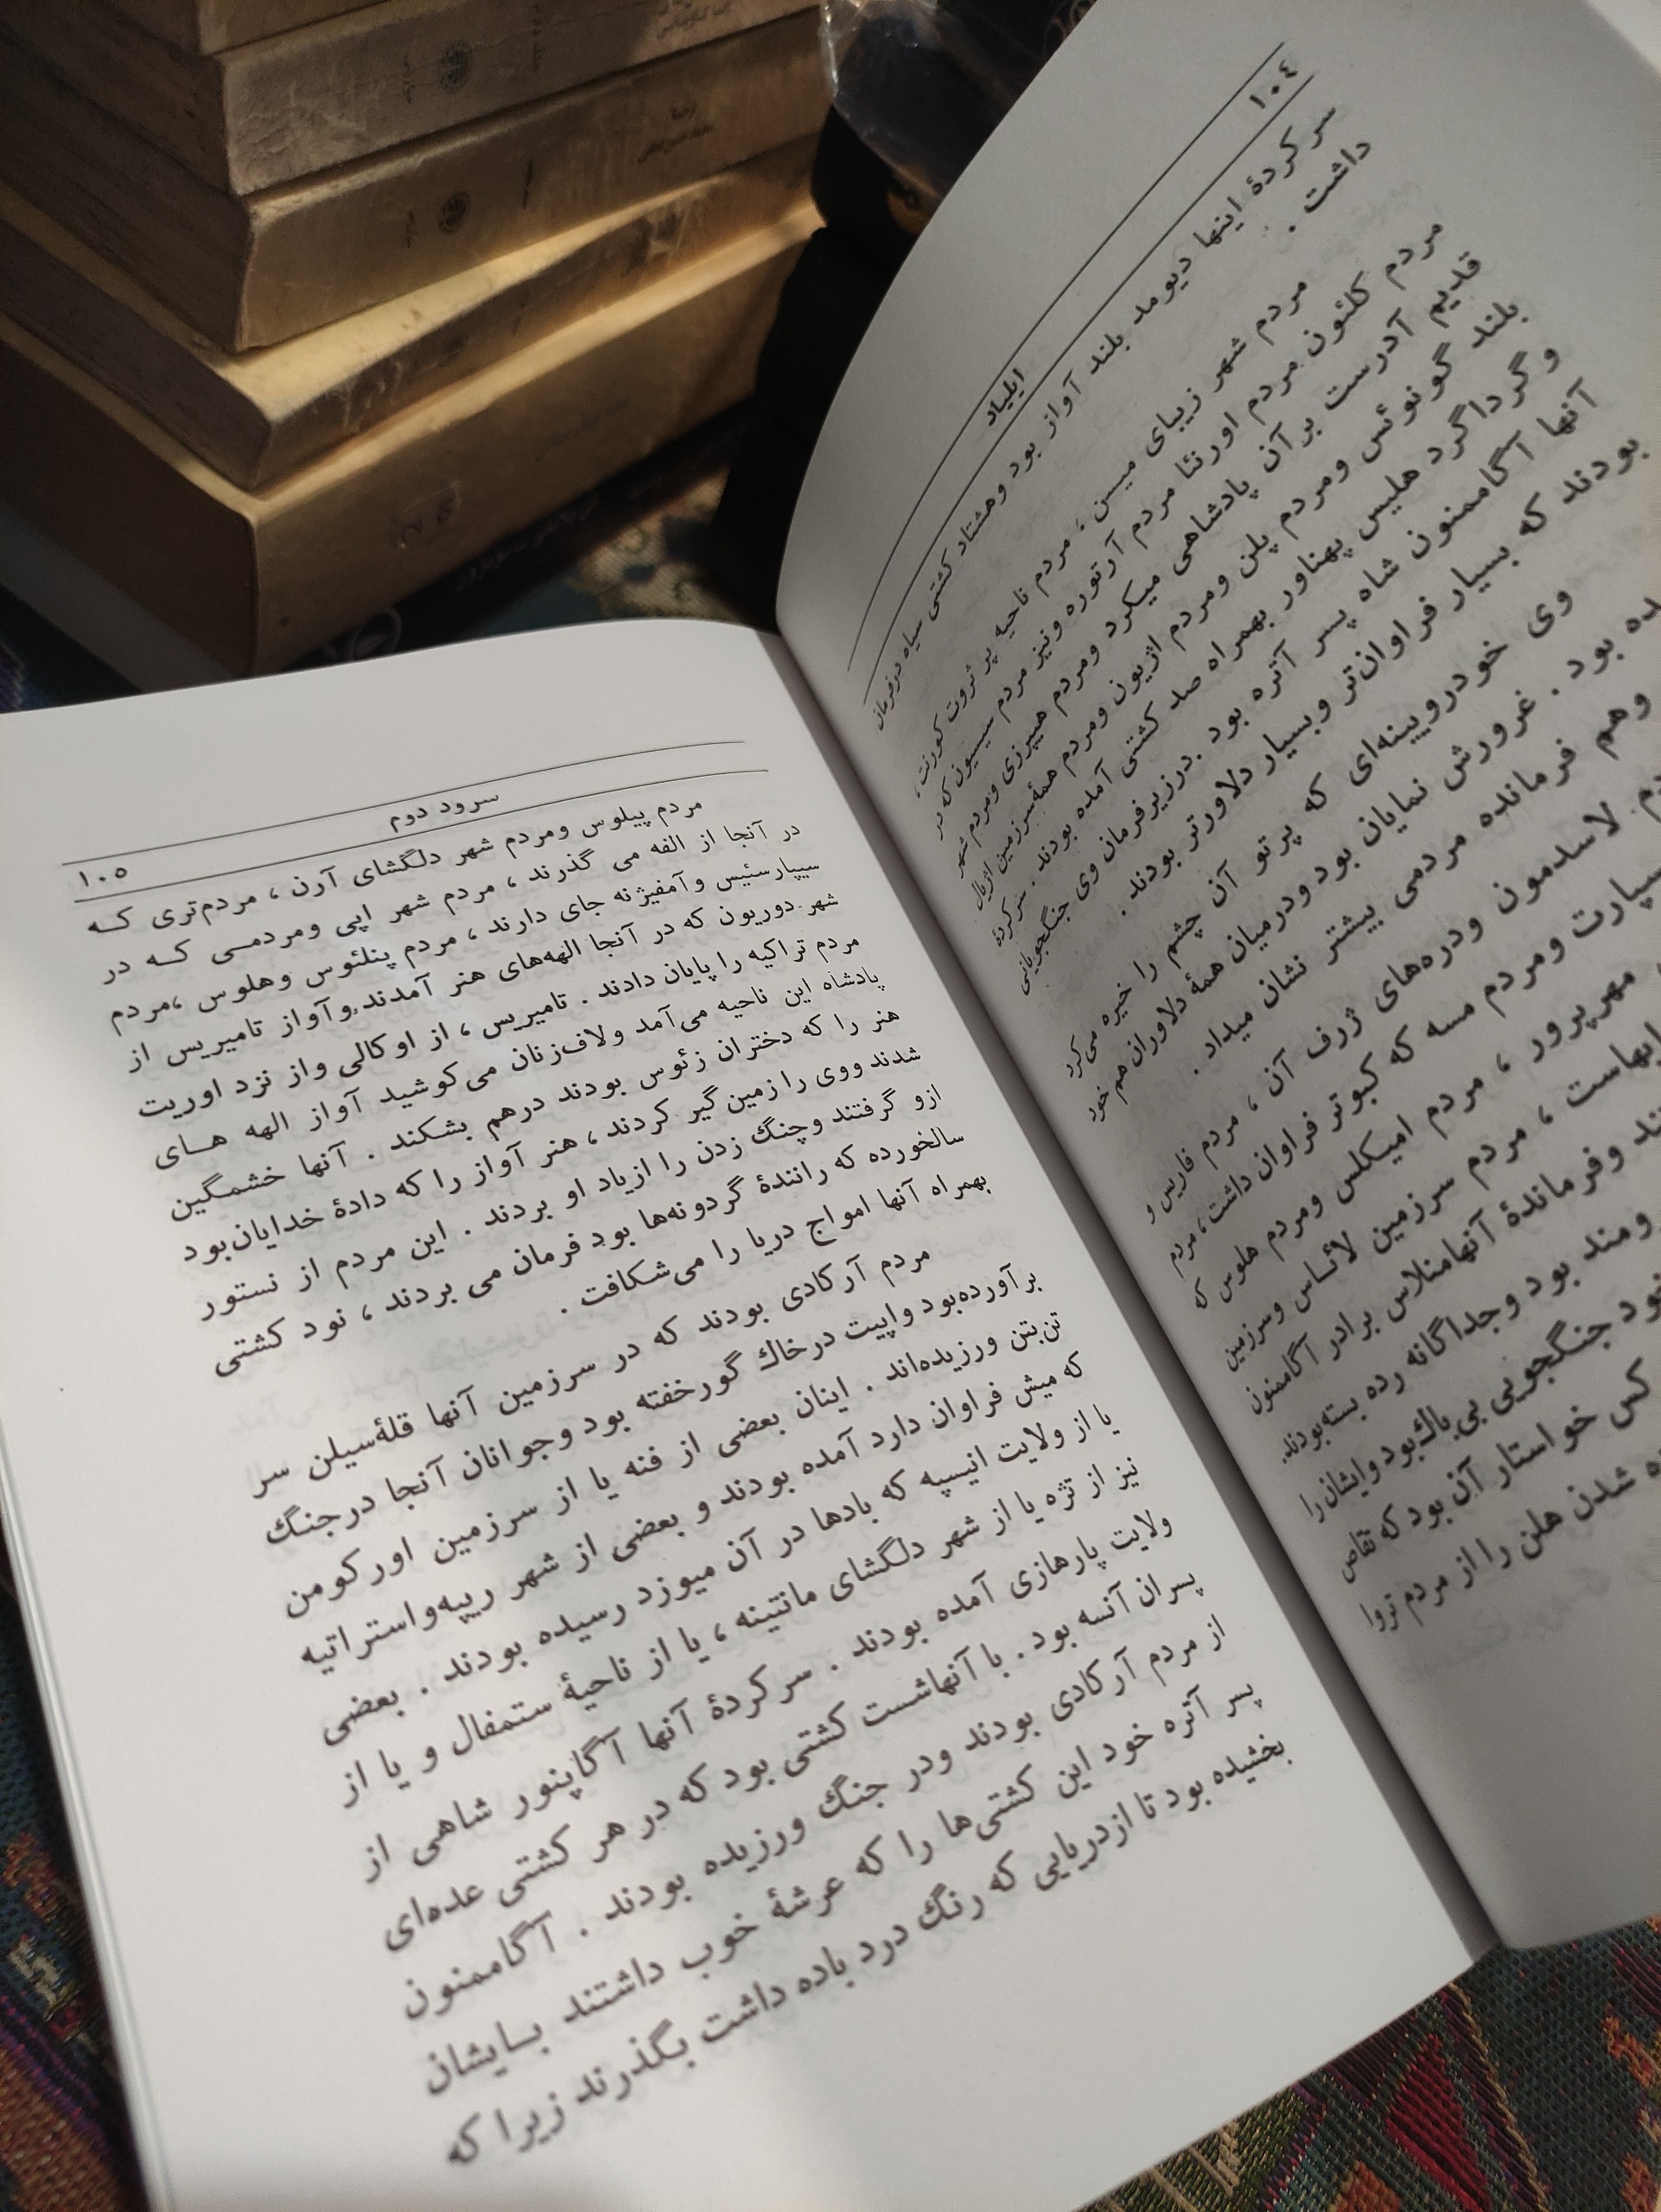 ۱۰٤
ایلیاد
سرکردهٔ اینها دیومد بلند آواز بود وهشتاد کشتی سیاه درفرمان
داشت .
مردم شهر زیبای میسن ، مردم ناحیه پر ثروت کورنت ،
مردم کلئون مردم اورنئا مردم آرتوره ونیز مردم سیسیون که در
قدیم آدرست بر آن پادشاهی میکرد ومردم هیپرزی ومردم شهر
بلند گونوئس ومردم پلن ومردم اژیون ومردم همهٔ سرزمین اژیال
وگرداگرد هلیس پهناور بهمراه صد کشتی آمده بودند . سرکردهٔ
آنها آگاممنون شاه پسر آتره بود . درزیرفرمان وی جنگجویانی
بودند که بسیار فراوان‌تر وبسیار دلاورتر بودند .
وی خودرویینه‌ای که پرتو آن چشم را خیره می‌کرد
بود . غرورش نمایان بود ودرمیان همهٔ دلاوران هم خود
وهم فرمانده مردمی بیشتر نشان میداد .
لاسدمون ودره‌های ژرف آن ، مردم فاریس و
سپارت ومردم مسه که کبوتر فراوان داشت ، مردم
مهرپرور ، مردم امیکلس ومردم هلوس که
، مردم سرزمین لائاس وسرزمین
وفرماندهٔ آنهامنلاس برادر آگاممنون
بود وجداگانه رده بسته بودند.
جنگجویی بی‌باك بود وایشان را
کس خواستار آن بود که تقاص
شدن هلن را از مردم تروا
سرود دوم
۱۰۵
مردم پیلوس ومردم شهر دلگشای آرن ، مردم‌تری که
در آنجا از الفه می گذرند ، مردم شهر اپی ومردمی که در
سیپارسئیس وآمفیژنه جای دارند ، مردم پنلئوس وهلوس ،مردم
شهر دوریون که در آنجا الهه‌های هنر آمدند وآواز تامیریس از
مردم تراکیه را پایان دادند . تامیریس ، از اوکالی واز نزد اوریت
پادشاه این ناحیه می‌آمد ولاف‌زنان می‌کوشید آواز الهه های
هنر را که دختران زئوس بودند درهم بشکند . آنها خشمگین
شدند ووی را زمین گیر کردند ، هنر آواز را که دادهٔ خدایان‌بود
ازو گرفتند وچنگ زدن را ازیاد او بردند . این مردم از نستور
سالخورده که رانندهٔ گردونه‌ها بود فرمان می بردند ، نود کشتی
بهمراه آنها امواج دریا را می‌شکافت .
مردم آرکادی بودند که در سرزمین آنها قلهٔ‌سیلن سر
برآورده‌بود واپیت درخاك گورخفته بود وجوانان آنجا درجنگ
تن‌بتن ورزیده‌اند . اینان بعضی از فنه یا از سرزمین اورکومن
که میش فراوان دارد آمده بودند و بعضی از شهر ریپه‌واستراتیه
یا از ولایت انیسپه که بادها در آن میوزد رسیده بودند . بعضی
نیز از تژه یا از شهر دلگشای مانتینه ، یا از ناحیهٔ ستمفال و یا از
ولایت پارهازی آمده بودند . سرکردهٔ آنها آگاپنور شاهی از
پسران آنسه بود . با آنهاشست کشتی بود که در هر کشتی عده‌ای
از مردم آرکادی بودند ودر جنگ ورزیده بودند . آگاممنون
پسر آتره خود این کشتی‌ها را که عرشهٔ خوب داشتند بایشان
بخشیده بود تا ازدریایی که رنگ درد باده داشت بگذرند زیرا که